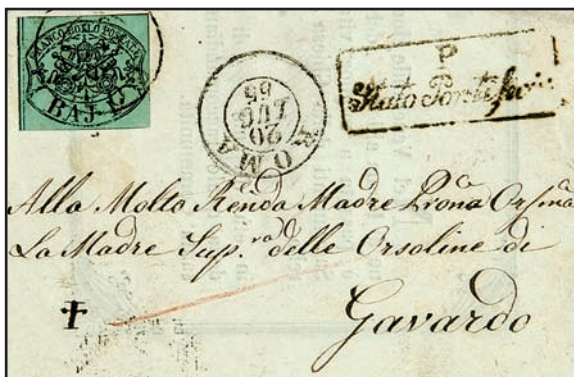 FRANCO BOLLO POSTALE
BAJ
ROMA
20
LUG
P
Stato Pontificio
Alla Molto Renda Madre Prona
La Madre Sup.ra delle Orsoline di
Gavardo